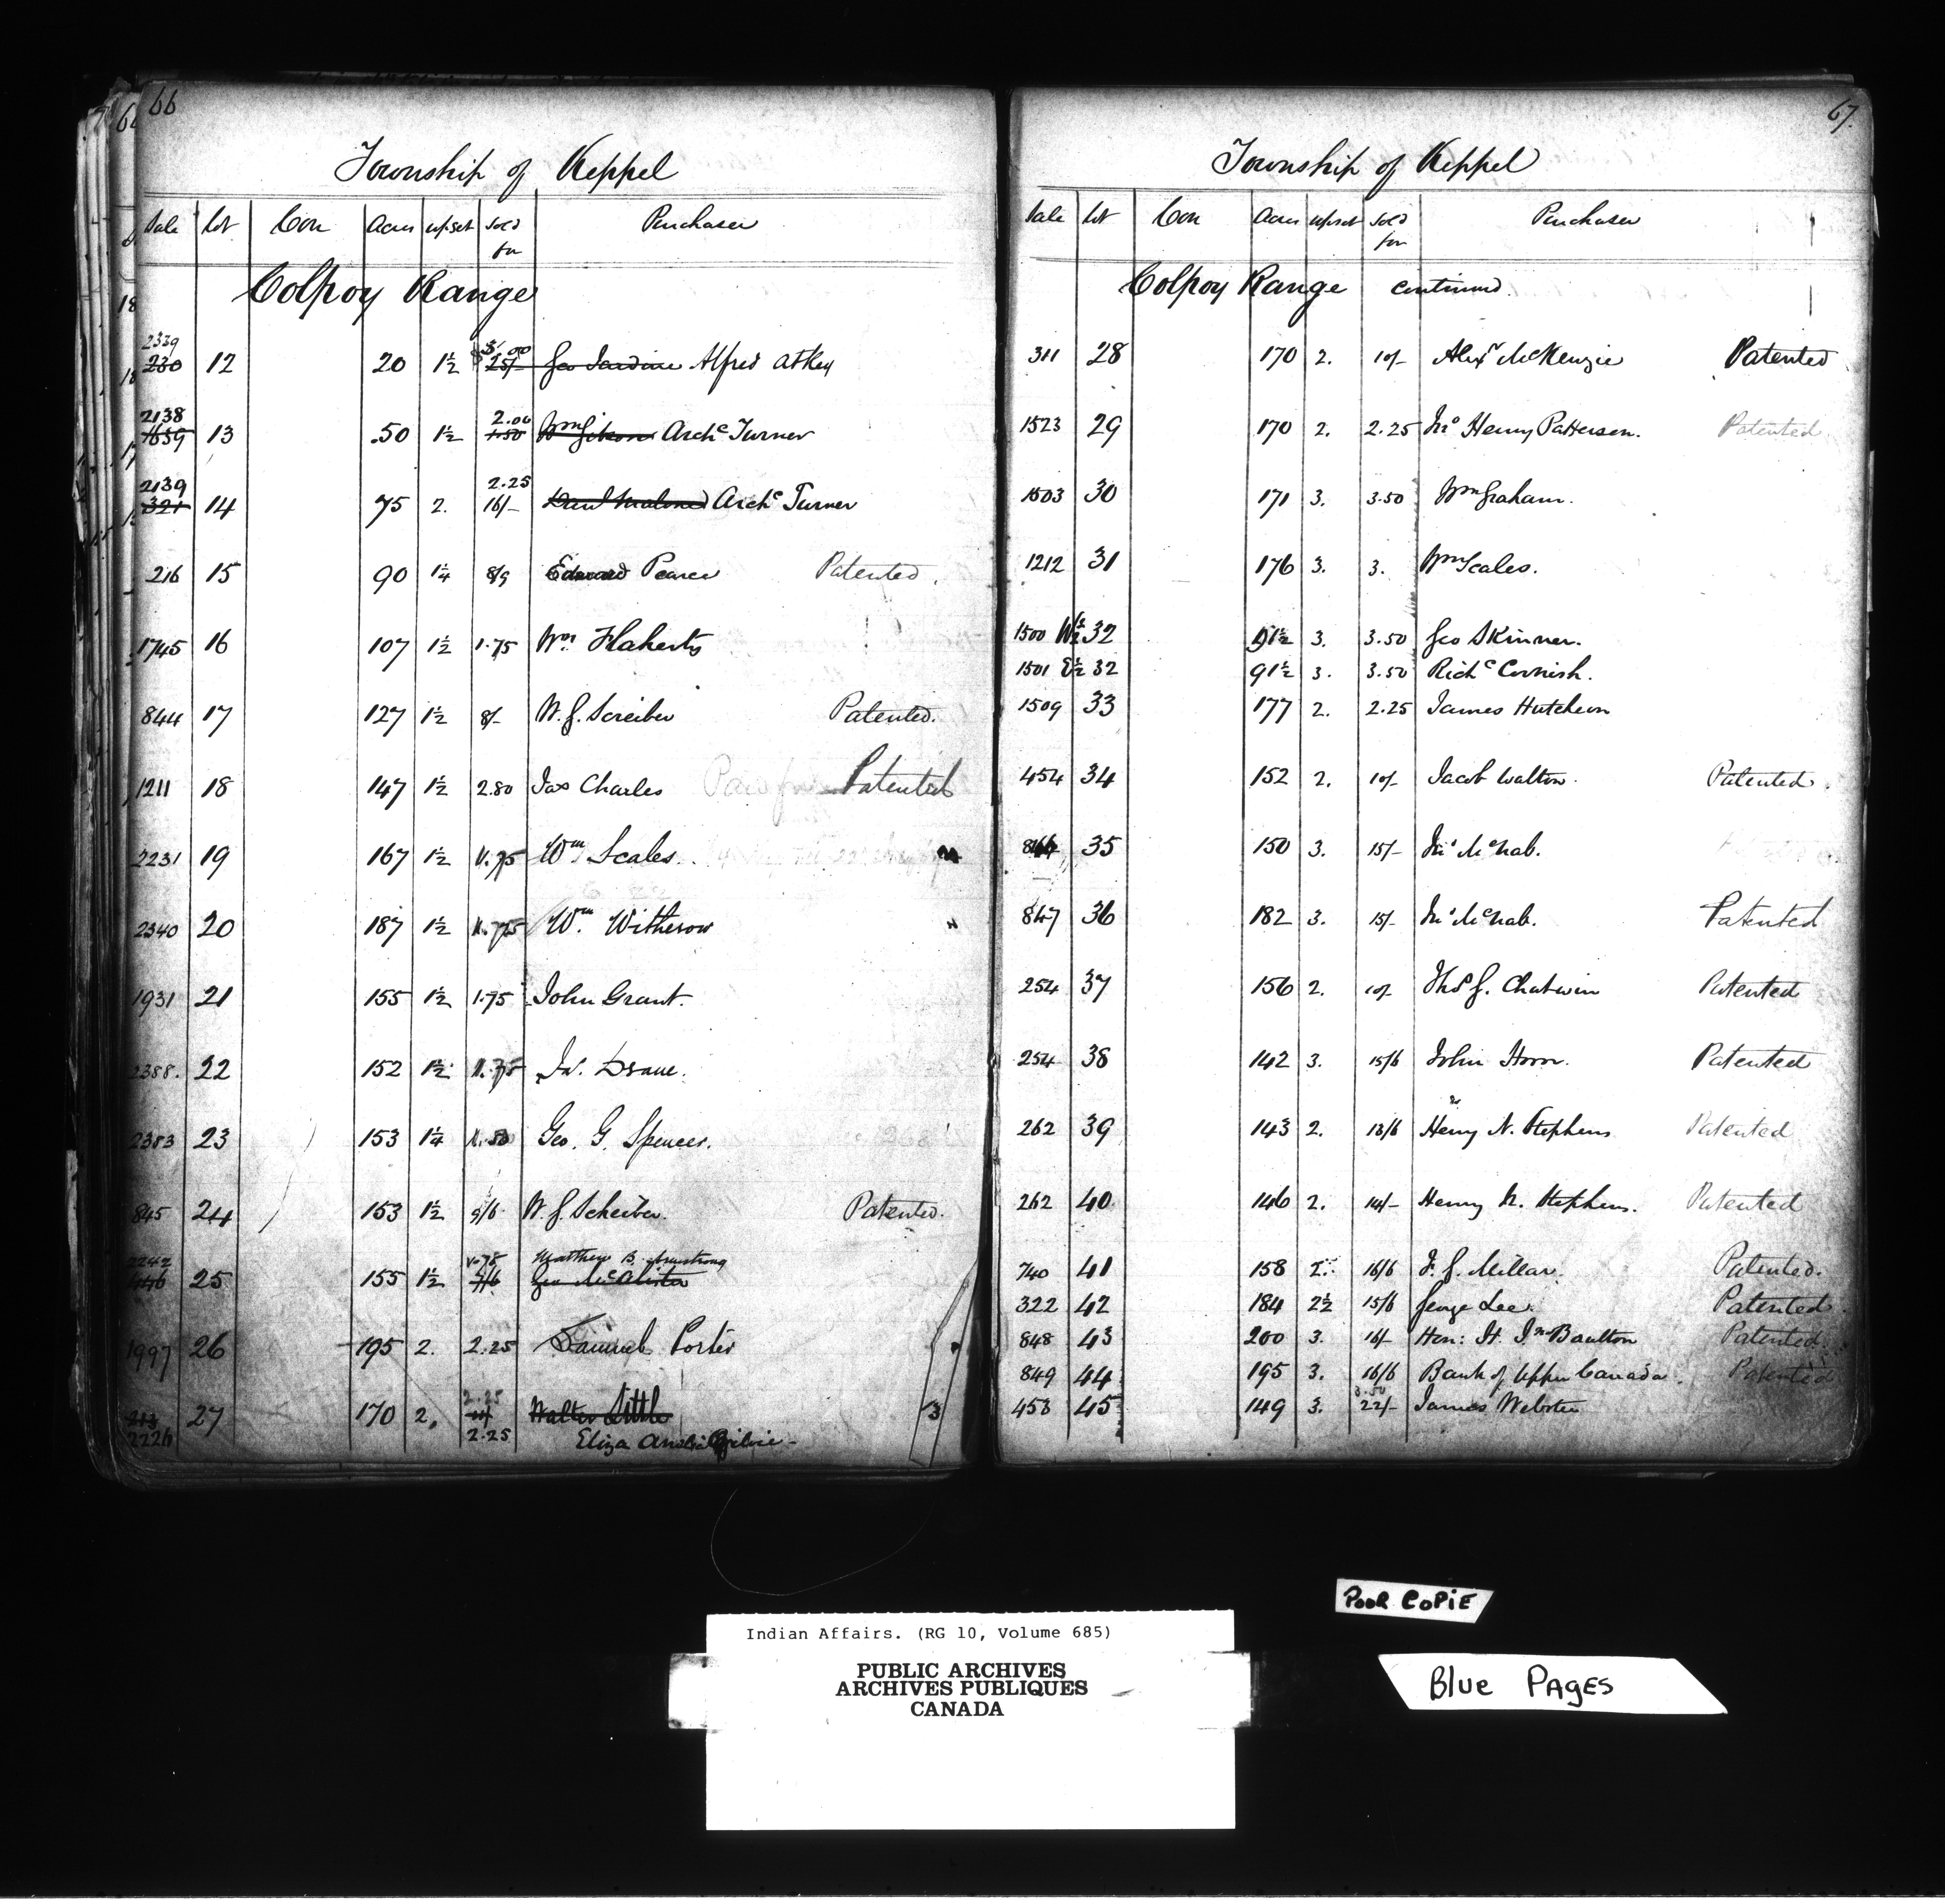 66
Township of Keppel
Sale Lot Con Acres upset Sold for Purchaser
Colpoy Range
2339
230 12 20 1½ 25/- Geo Jardine Alfred Atkey
2138 2.00
1659 13 50 1½ 1.50 Archd Turner
2139 2.25
321 14 75 2. 16/- Archd Turner
216 15 90 1¼ 8/9 Edward Pearce Patented.
1745 16 107 1½ 1.75 Wm Flaherty
844 17 127 1½ 8/- W. G. Screiber Patented.
1211 18 147 1½ 2.80 Jas Charles Patented
2231 19 167 1½ 1.75 Wm Scales.
2340 20 187 1½ 1.75 Wm Witherow
1931 21 155 1½ 1.75 John Grant.
2388. 22 152 1½ 1.75
2383 23 153 1¼ 1.50 Geo. G. Spencer.
845 24 153 1½ 9/6 W. G. Schreiber. Patented.
2242 1.75 Matthew B. Armstrong
446 25 155 1½ 9/6 Geo McAlister
1997 26 195 2. 2.25 Samuel Porter
2.25
213 27 170 2, Walter Little 3
2226 2.25 Eliza Ogilvie -
67.
Township of Keppel
Sale Lot Con Acres upset Sold for Purchaser
Colpoy Range continued.
311 28 170 2. 10/- Alexr McKenzie Patented
1523 29 170 2. 2.25 Jno Henry Patterson. Patented
1503 30 171 3. 3.50 Wm Graham.
1212 31 176 3. 3. Wm Scales.
1500 W½ 32 91½ 3. 3.50 Geo Skinner.
1501 E½ 32 91½ 3. 3.50 Richd Cornish.
1509 33 177 2. 2.25 James Hutcheon
454 34 152 2. 10/- Jacob Walton. Patented.
846 35 150 3. 15/- Jno McNab.
847 36 182 3. 15/- Jno McNab. Patented
254 37 156 2. 10/- Thos G. Chatwin Patented
254 38 142 3. 15/6 John Horn. Patented
262 39 143 2. 13/6 Henry N. Stephens Patented
262 40 146 2. 14/- Henry N. Stephens. Patented
740 41 158 2. 16/6 J. G. Millar. Patented.
322 42 184 2½ 15/6 George Lee. Patented
848 43 200 3. 16/- Hon: H. Jno Boulton Patented.
849 44 195 3. 16/6 Bank of Upper Canada. Patented
3.50
453 45 149 3. 22/- James Webster
POOR COPIE
Indian Affairs. (RG 10, Volume 685)
PUBLIC ARCHIVES
ARCHIVES PUBLIQUES
CANADA
Blue PAGES